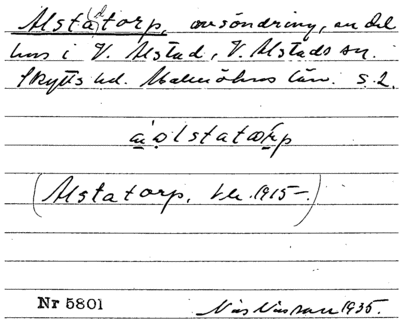 Alsta(d)torp, avsöndring, en del
hus i V. Alstad, V. Alstads sn.
Skytts hd. Malmöhus län. s. 2.
(Alstatorp, 1915-.)
Nr 5801
Nils Nilsson 1935.